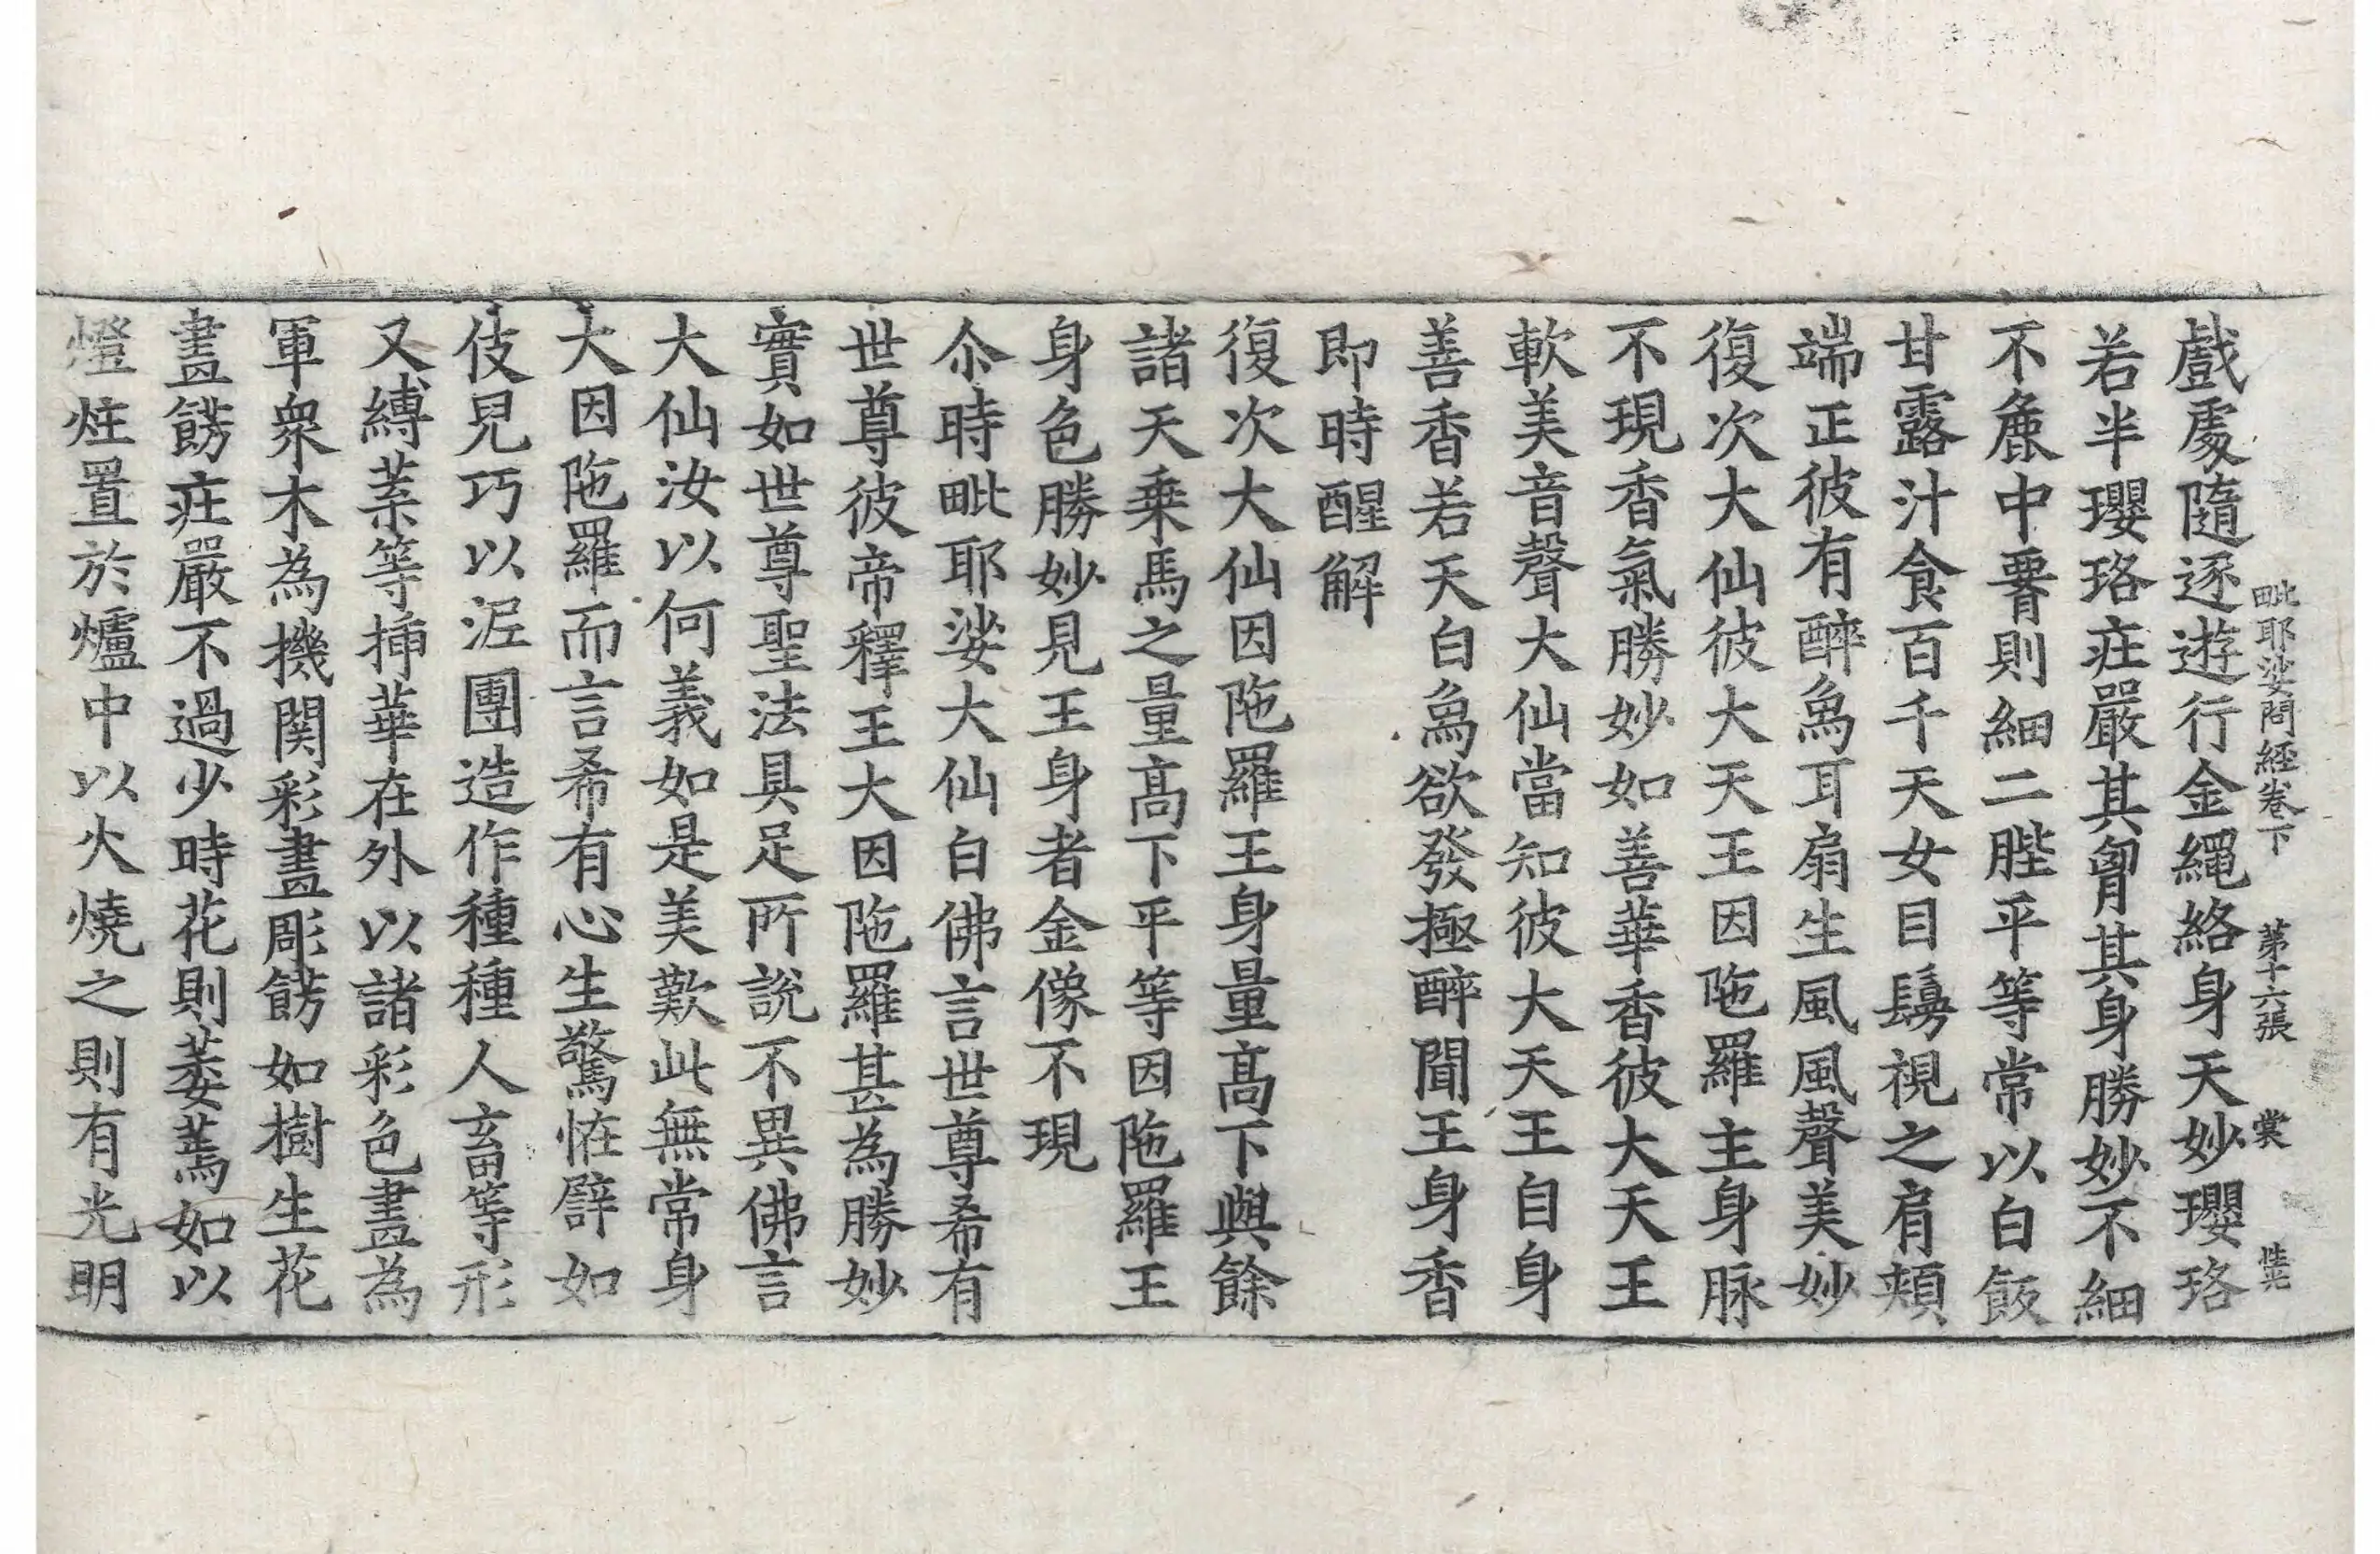 毗耶娑問經卷下 第十六張 裳
戲處隨逐遊行金繩絡身天妙瓔珞
若半瓔珞庄嚴其胷其身勝妙不細
不麁中臋則細二䏶平等常以白飯
甘露汁食百千天女目瞬視之肩頰
端正彼有醉𤉢耳扇生風風聲美妙
復次大仙彼大天王因陁羅主身脉
不現香氣勝妙如善華香彼大天王
軟美音聲大仙當知彼大天王自身
善香若天白𤉢欲發極醉聞王身香
即時醒解
復次大仙因陁羅王身量髙下與餘
諸天乗馬之量髙下平等因陁羅王
身色勝妙見王身者金像不現
尒時毗耶娑大仙白佛言世尊希有
世尊彼帝釋王大因陁羅甚為勝妙
實如世尊聖法具足所說不異佛言
大仙汝以何義如是美歎此無常身
大因陁羅而言希有心生驚恠譬如
伎兒巧以泥團造作種種人畜等形
又縛葉等揷華在外以諸彩色畫為
軍衆木為機関彩畫彫餝如樹生花
畫餝庄嚴不過少時花則萎蔫如以
燈炷置於爐中以火燒之則有光明